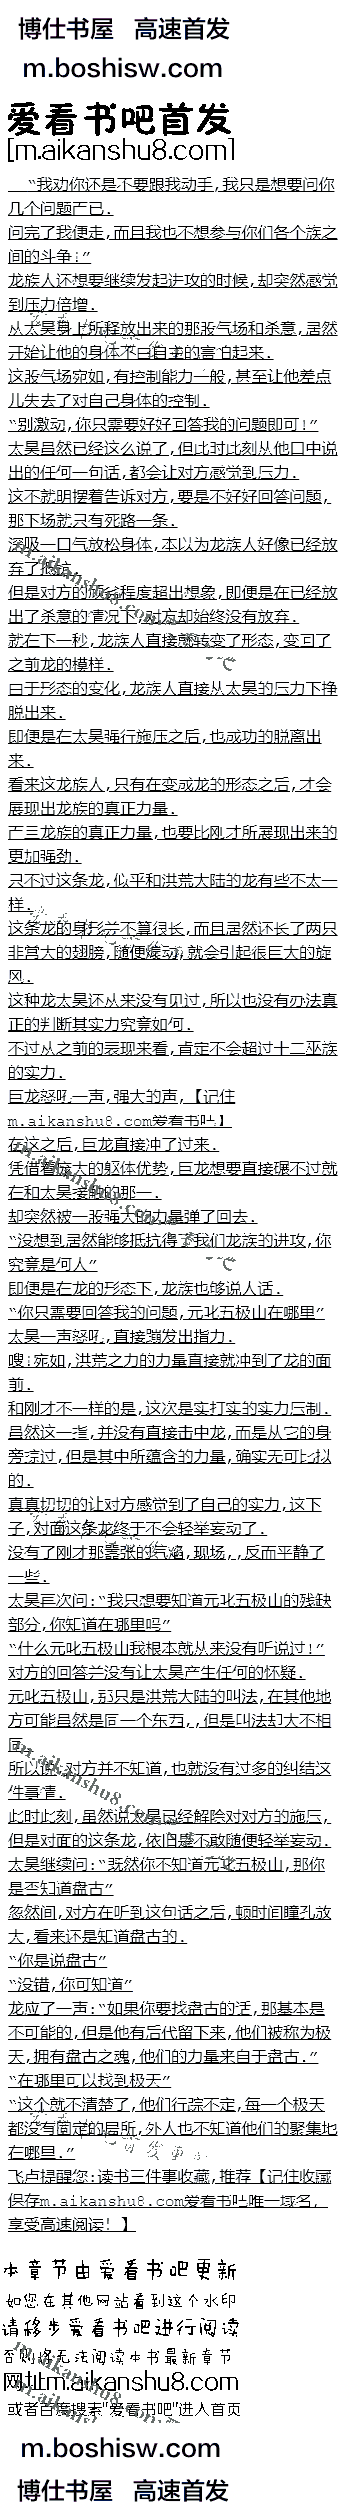 博仕书屋 高速首发
m.boshisw.com
爱看书吧首发
[m.aikanshu8.com]
“我劝你还是不要跟我动手,我只是想要问你
几个问题而已.
问完了我便走,而且我也不想参与你们各个族之
间的斗争!”
龙族人还想要继续发起进攻的时候,却突然感觉
到压力倍增.
从太昊身上所释放出来的那股气场和杀意,居然
开始让他的身体不由自主的害怕起来.
这股气场宛如,有控制能力一般,甚至让他差点
儿失去了对自己身体的控制.
“别激动,你只需要好好回答我的问题即可!”
太昊虽然已经这么说了,但此时此刻从他口中说
出的任何一句话,都会让对方感觉到压力.
这不就明摆着告诉对方,要是不好好回答问题,
那下场就只有死路一条.
深吸一口气放松身体,本以为龙族人好像已经放
弃了抵抗.
但是对方的顽劣程度超出想象,即便是在已经放
出了杀意的情况下,对方却始终没有放弃.
就在下一秒,龙族人直接就转变了形态,变回了
之前龙的模样.
由于形态的变化,龙族人直接从太昊的压力下挣
脱出来.
即便是在太昊强行施压之后,也成功的脱离出
来.
看来这龙族人,只有在变成龙的形态之后,才会
展现出龙族的真正力量.
而三龙族的真正力量,也要比刚才所展现出来的
更加强劲.
只不过这条龙,似乎和洪荒大陆的龙有些不太一
样.
这条龙的身形并不算很长,而且居然还长了两只
非常大的翅膀,随便煽动,就会引起很巨大的旋
风.
这种龙太昊还从来没有见过,所以也没有办法真
正的判断其实力究竟如何.
不过从之前的表现来看,肯定不会超过十二巫族
的实力.
巨龙怒吼一声,强大的声,【记住
m.aikanshu8.com爱看书吧】
在这之后,巨龙直接冲了过来.
凭借着庞大的躯体优势,巨龙想要直接碾不过就
在和太昊接触的那一.
却突然被一股强大的力量弹了回去.
“没想到居然能够抵抗得了我们龙族的进攻,你
究竟是何人”
即便是在龙的形态下,龙族也够说人话.
“你只需要回答我的问题,元叱五极山在哪里”
太昊一声怒吼,直接蹦发出指力.
嗖!宛如,洪荒之力的力量直接就冲到了龙的面
前.
和刚才不一样的是,这次是实打实的实力压制.
虽然这一指,并没有直接击中龙,而是从它的身
旁掠过,但是其中所蕴含的力量,确实无可比拟
的.
真真切切的让对方感觉到了自己的实力,这下
子,对面这条龙终于不会轻举妄动了.
没有了刚才那嚣张的气焰,现场,,反而平静了
一些.
太昊再次问:“我只想要知道元叱五极山的残缺
部分,你知道在哪里吗”
“什么元叱五极山我根本就从来没有听说过!”
对方的回答并没有让太昊产生任何的怀疑.
元叱五极山,那只是洪荒大陆的叫法,在其他地
方可能虽然是同一个东西,,但是叫法却大不相
同.
所以说,对方并不知道,也就没有过多的纠结这
件事情.
此时此刻,虽然说太昊已经解除对对方的施压,
但是对面的这条龙,依旧是不敢随便轻举妄动.
太昊继续问:“既然你不知道元叱五极山,那你
是否知道盘古”
忽然间,对方在听到这句话之后,顿时间瞳孔放
大,看来还是知道盘古的.
“你是说盘古”
“没错,你可知道”
龙应了一声:“如果你要找盘古的话,那基本是
不可能的,但是他有后代留下来,他们被称为极
天,拥有盘古之魂,他们的力量来自于盘古.”
“在哪里可以找到极天”
“这个就不清楚了,他们行踪不定,每一个极天
都没有固定的居所,外人也不知道他们的聚集地
在哪里.”
飞卢提醒您:读书三件事收藏,推荐【记住收藏
保存m.aikanshu8.com爱看书吧唯一域名,
享受高速阅读！】
本章节由爱看书吧更新
如您在其他网站看到这个水印
请移步爱看书吧进行阅读
否则将无法阅读本书最新章节
网址m.aikanshu8.com
或者百度搜索“爱看书吧”进入首页
m.boshisw.com
博仕书屋 高速首发